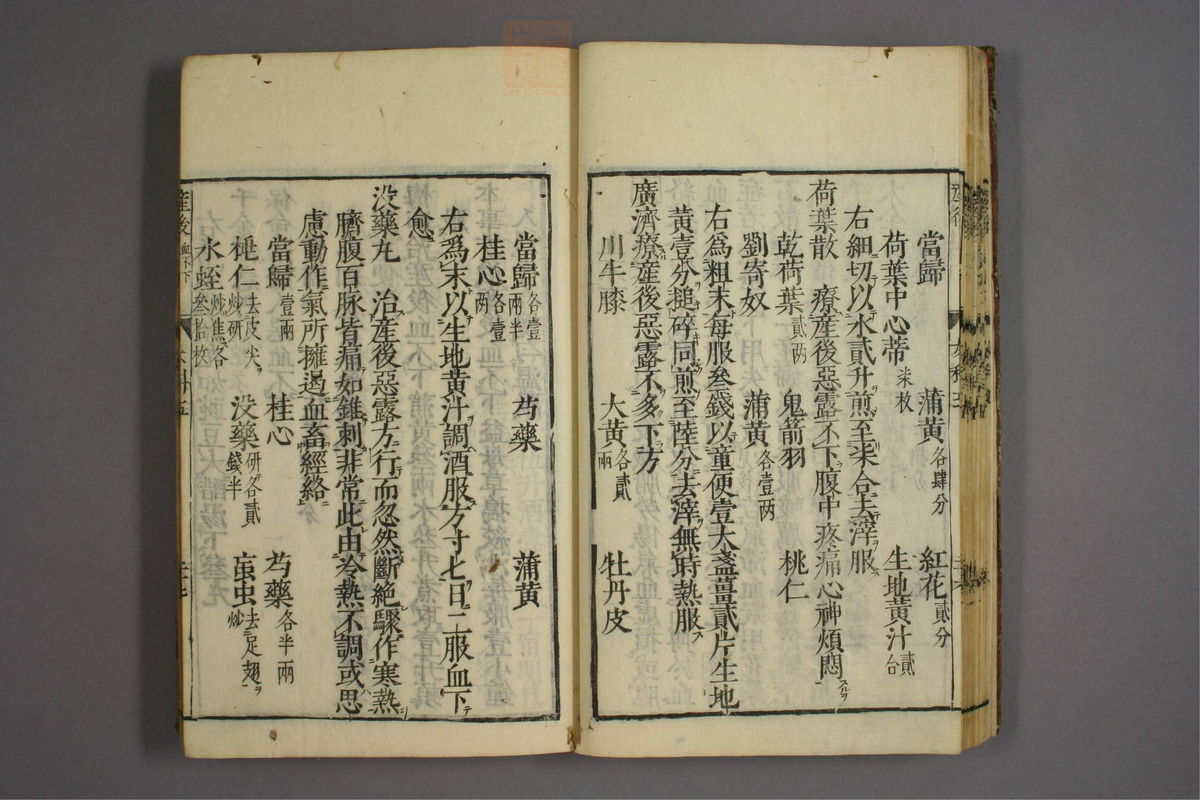 當歸 蒲黃各肆分 紅花貳分
荷葉中心蒂柒枚 生地黃汁貳合
右細切以水貳升煎至柒合去滓服
荷葉散 療産後惡露不下腹中疼痛心神煩悶
乾荷葉貳两 鬼箭羽 桃仁
劉寄奴 蒲黃各壹两
右爲粗末每服叁錢以童便壹大盞薑貳片生地
黃壹分搥碎同煎至陸分去滓無時熱服
廣濟療産後惡露不多下方
川牛膝 大黃各貳兩 牡丹皮
當歸各壹兩半 芍藥 蒲黃
桂心各壹兩
右爲末以生地黃汁調酒服方寸七日二服血下
愈
没藥丸 治産後惡露方行而忽然斷絶驟作寒熱
臍腹百脉皆痛如錐刺非常此由冷熱不調或思
慮動作氣所擁遏血畜經絡
當歸壹兩 桂心 芍藥各半兩
桃仁去皮尖炒研 没藥研各貳錢半 䖟虫去足翅炒
水蛭炒焦各叁拾枚
産後